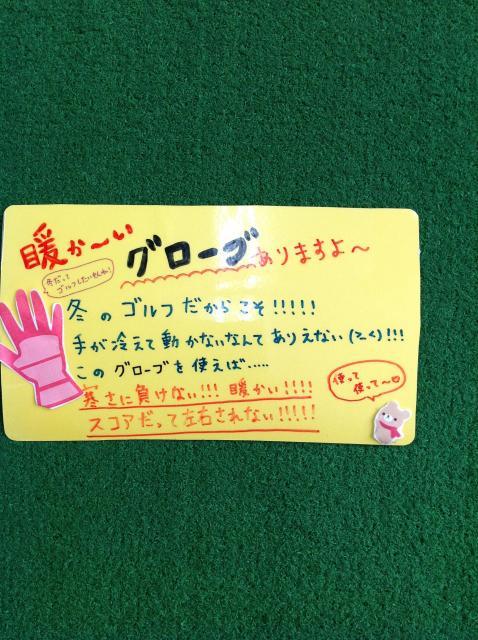 暖か〜い
グローブありますよ〜
冬だって
ゴルフしたいもんね!
冬のゴルフだからこそ!!!!!
手が冷えて動かないなんてありえない(>_<)!!!
このグローブを使えば.....
寒さに負けない!!! 暖かい!!!!
スコアだって左右されない!!!!!
使って
使って〜